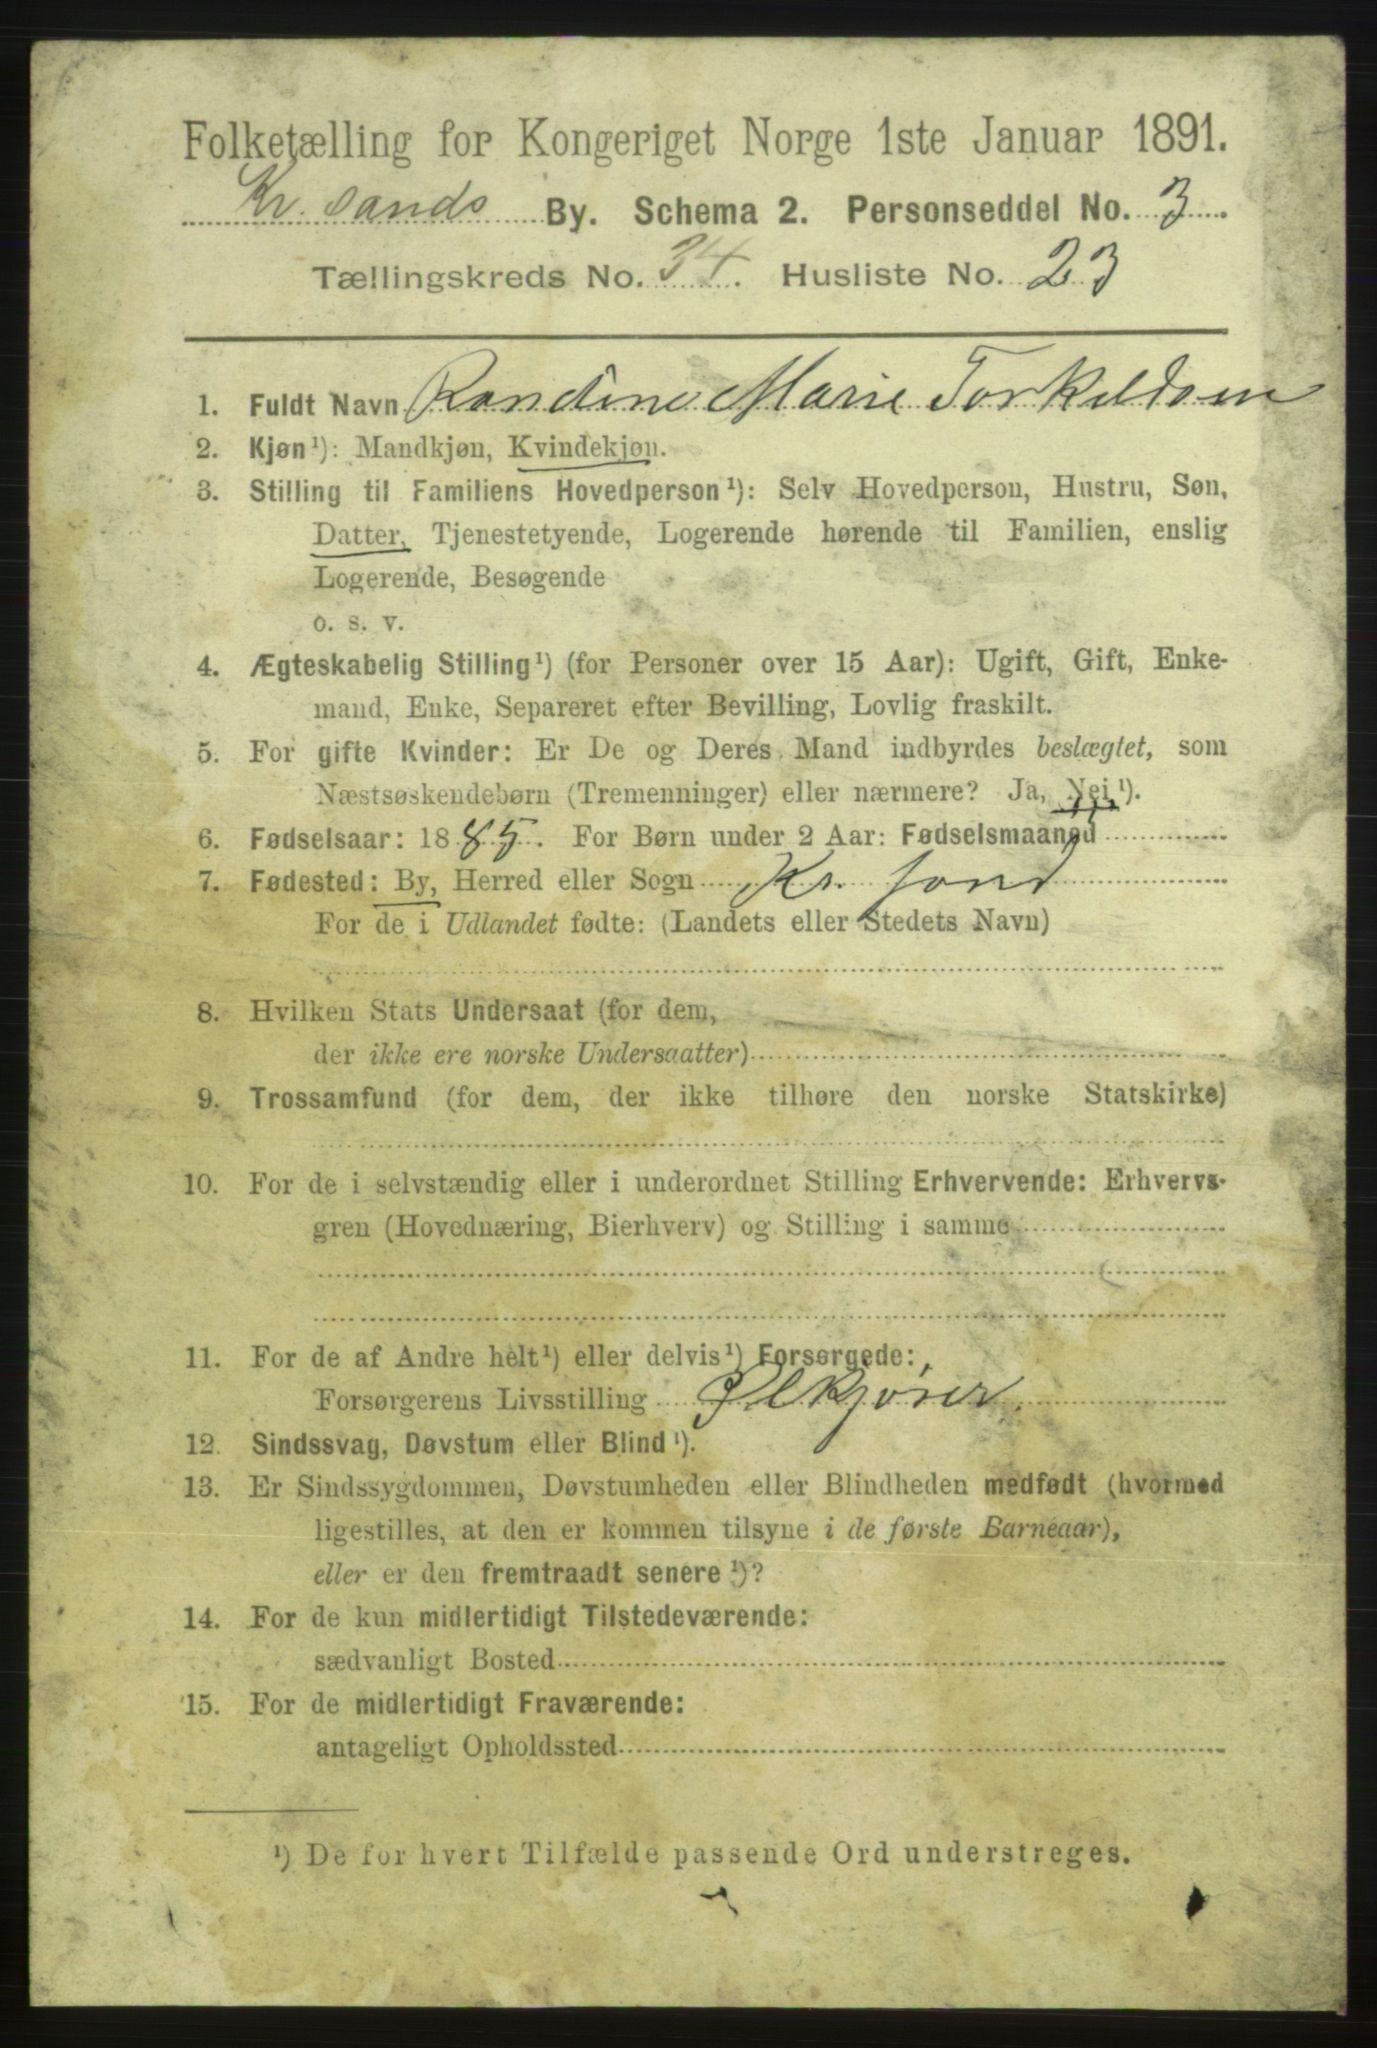 Folketælling for Kongeriget Norge 1ste Januar 1891.
Kr. sands By. Schema 2. Personseddel No. 3.
Tællingskreds No. 34. Husliste No. 23
1. Fuldt Navn Randine Marie Torkeldsen
2. Kjøn¹): Mandkjøn, Kvindekjøn.
3. Stilling til Familiens Hovedperson¹): Selv Hovedperson, Hustru, Søn,
Datter, Tjenestetyende, Logerende hørende til Familien, enslig
Logerende, Besøgende
o. s. v.
4. Ægteskabelig Stilling¹) (for Personer over 15 Aar): Ugift, Gift, Enke-
mand, Enke, Separeret efter Bevilling, Lovlig fraskilt.
5. For gifte Kvinder: Er De og Deres Mand indbyrdes beslægtet, som
Næstsøskendebørn (Tremenninger) eller nærmere? Ja, Nei¹).
6. Fødselsaar: 1885. For Børn under 2 Aar: Fødselsmaaned
7. Fødested: By, Herred eller Sogn Kr. sand
For de i Udlandet fødte: (Landets eller Stedets Navn)
8. Hvilken Stats Undersaat (for dem,
der ikke ere norske Undersaatter)
9. Trossamfund (for dem, der ikke tilhøre den norske Statskirke)
10. For de i selvstændig eller i underordnet Stilling Erhvervende: Erhvervs-
gren (Hovednæring, Bierhverv) og Stilling i samme
11. For de af Andre helt¹) eller delvis¹) Forsørgede:
Forsørgerens Livsstilling
12. Sindssvag, Døvstum eller Blind¹).
13. Er Sindssygdommen, Døvstumheden eller Blindheden medfødt (hvormed
ligestilles, at den er kommen tilsyne i de første Barneaar),
eller er den fremtraadt senere¹)?
14. For de kun midlertidigt Tilstedeværende:
sædvanligt Bosted
15. For de midlertidigt Fraværende:
antageligt Opholdssted
¹) De for hvert Tilfælde passende Ord understreges.